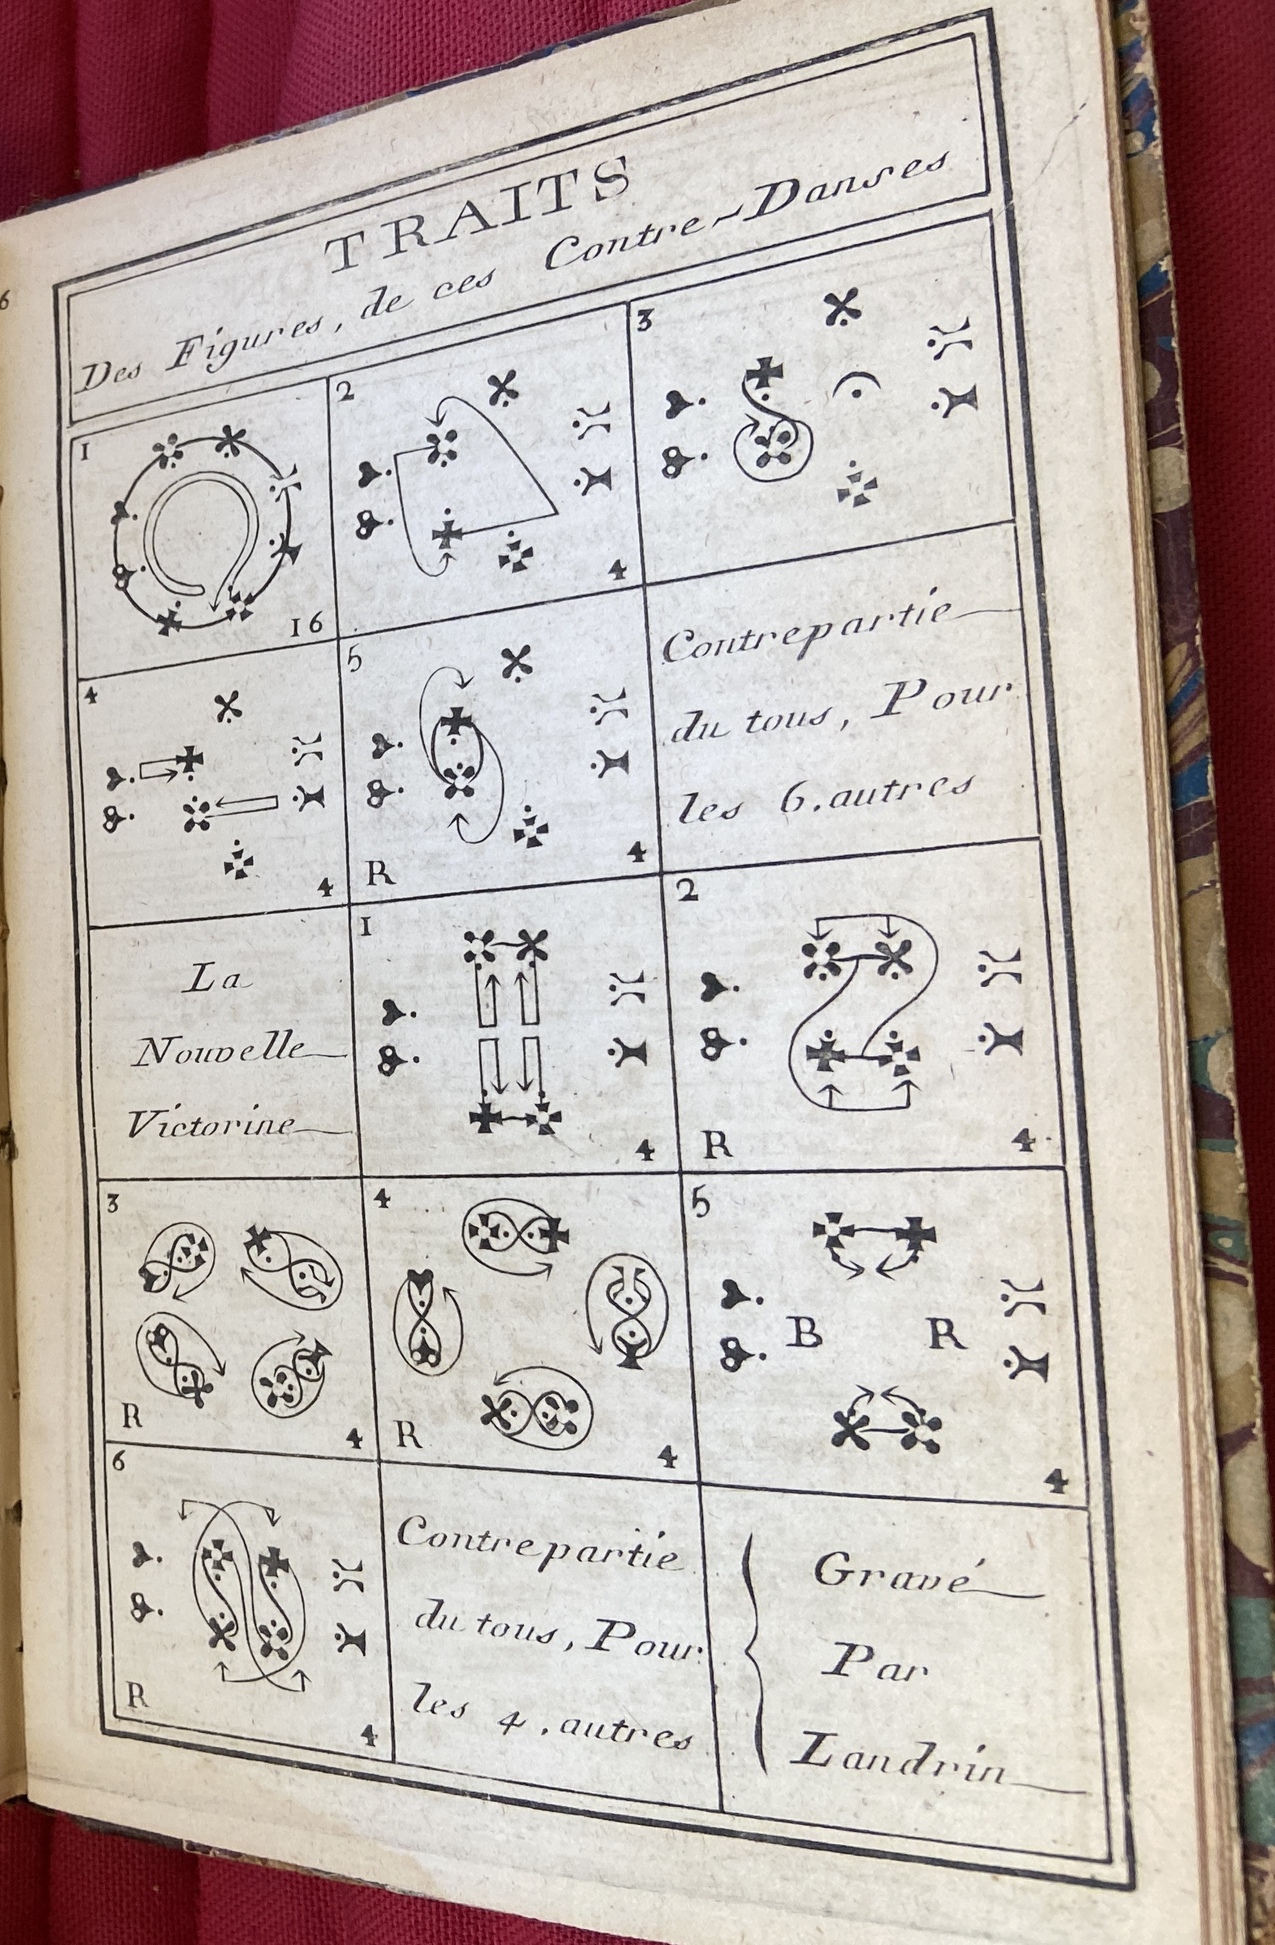 6
TRAITS
Des Figures, de ces Contre-Danses
1
16
2
4
3
4
4
5
R
4
Contrepartie
du tous, Pour
les 6. autres
La
Nouvelle
Victorine
1
4
2
R
4
3
R
4
4
R
4
5
B R
4
6
R
4
Contrepartie
du tous, Pour
les 4. autres
Gravé
Par
Landrin